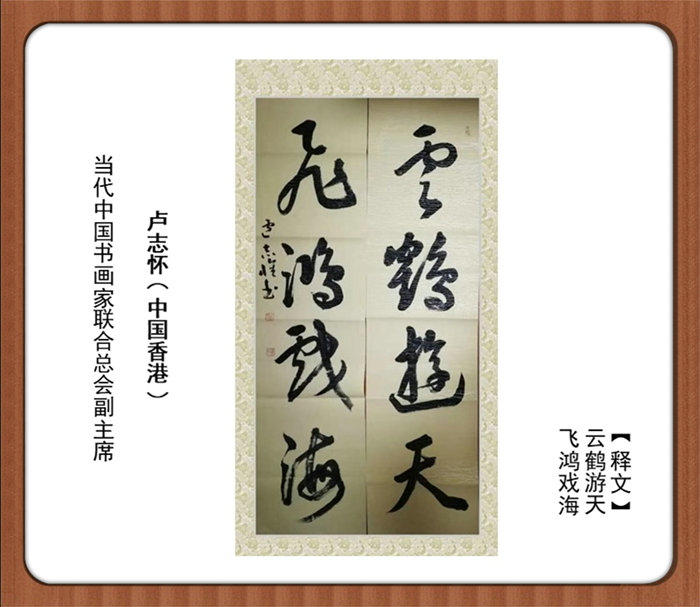 【释文】
云鹤游天
飞鸿戏海
雲鶴遊天
飛鴻戲海
卢志怀书
卢志怀（中国香港）
当代中国书画家联合总会副主席